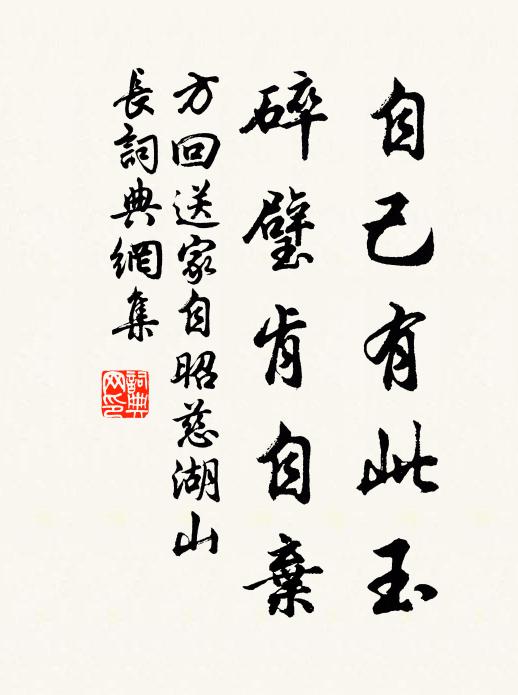 自己有此玉
碎璧肯自棄
方回送家自昭慈湖山
長詞典網集
詞典
网印